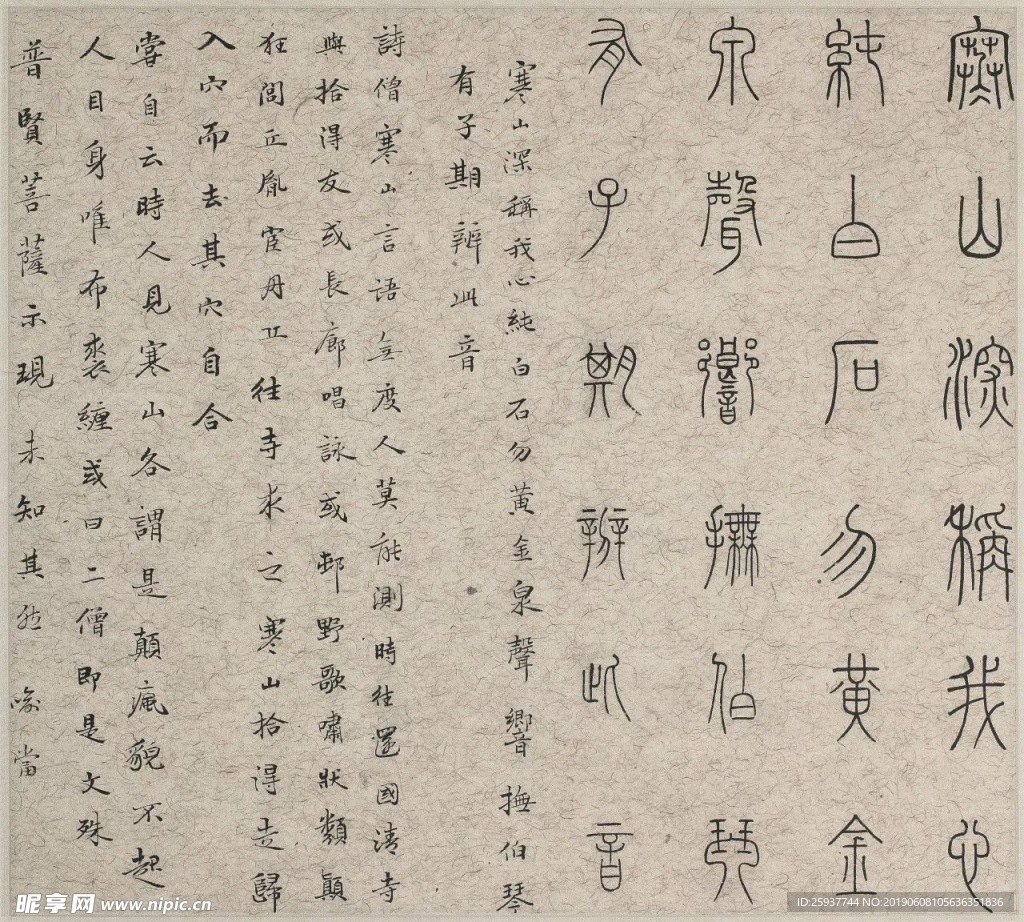 寒山深稱我心
純白石勿黃金
泉聲響撫伯琴
有子期辨此音
寒山深稱我心純白石勿黃金泉聲響撫伯琴
有子期辨此音
詩僧寒山言語無度人莫能測時往還國清寺
與拾得友或長廊唱詠或邨野歌嘯狀類顛
狂閭丘胤宦丹丘往寺求之寒山拾得走歸
入穴而去其穴自合
嘗自云時人見寒山各謂是顛瘋貌不起
人目身唯布裘纏或曰二僧即是文殊
普賢菩薩示現未知其然喻當
昵享网 www.nipic.cn
ID:25937744 NO:20190608105636351836